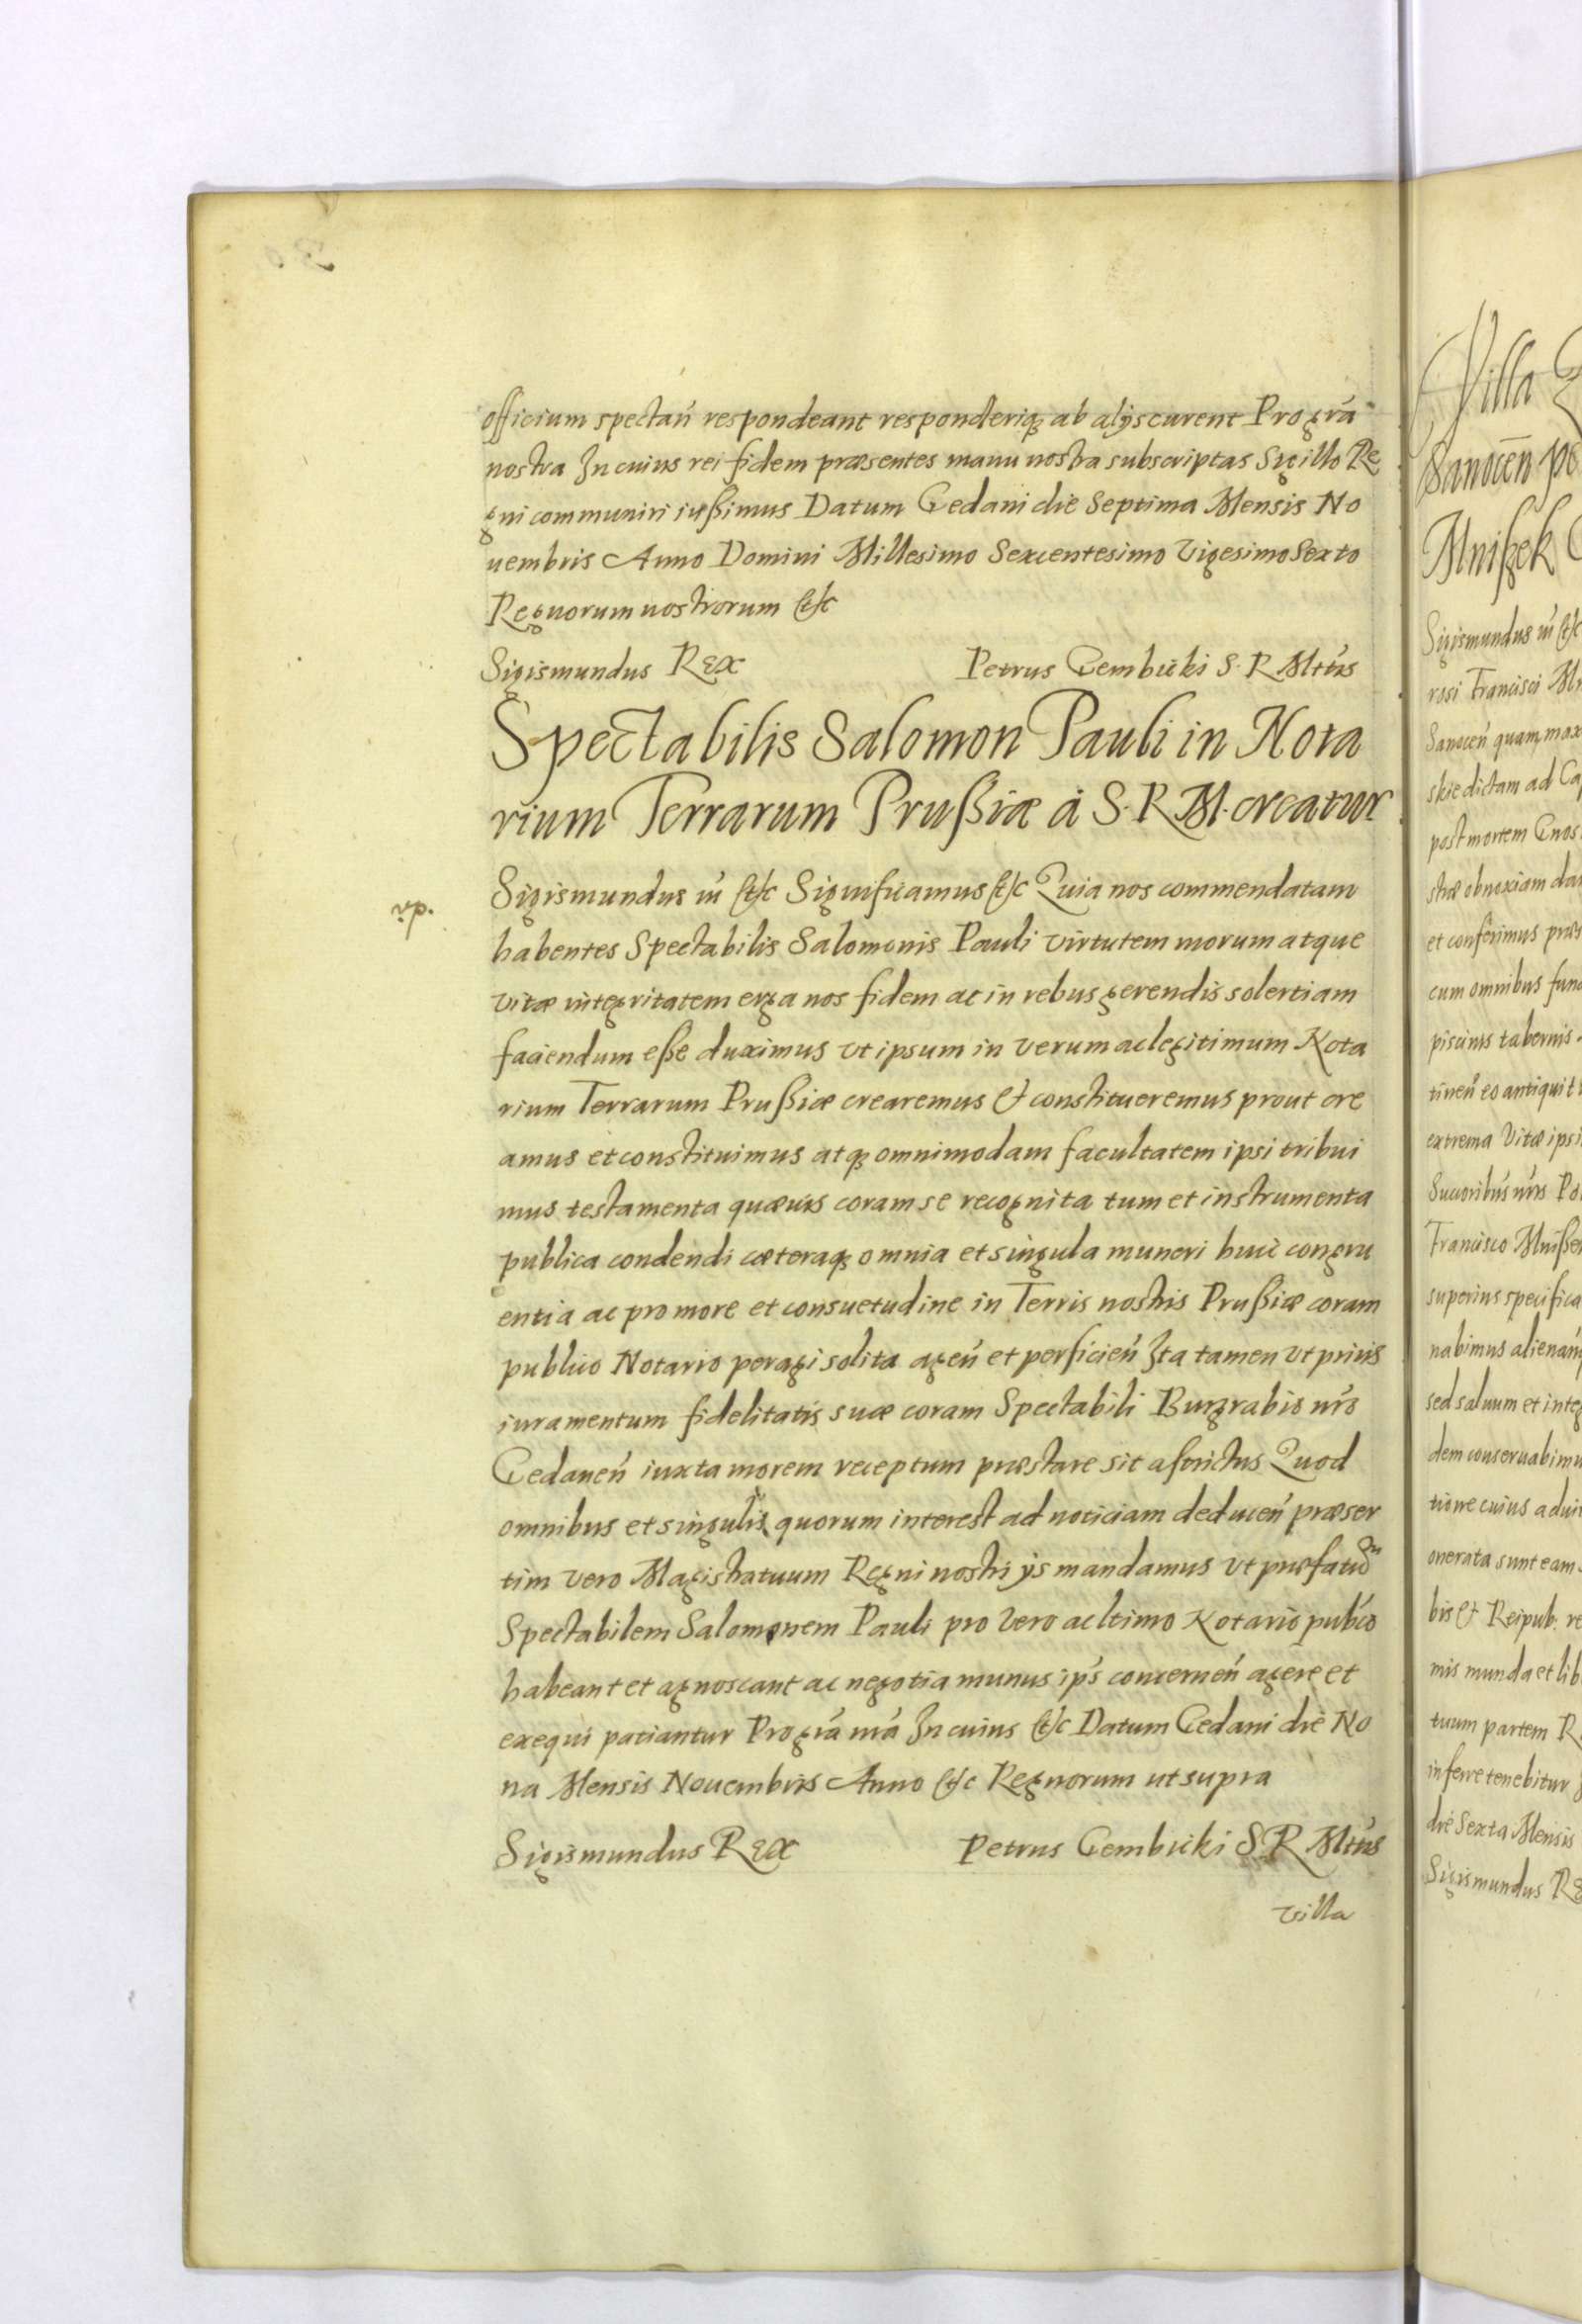 officium spectan̄ respondeant responderiq; ab alijs curent Pro gr̃a
nostra In cuius rei fidem præsentes manu nostra subscriptas Sigillo Re
gni communiri iußimus Datum Gedani die Septima Mensis No
uembris Anno Domini Millesimo Sexcentesimo Vigesimo Sexto
Regnorum nostrorum &c
Sigismundus Rex Petrus Gembicki S. R. Mttis
Spectabilis Salomon Pauli in Nota
rium Terrarum Prußiæ á S. R. M. creatur
Sigismundus iii &c Significamus &c Quia nos commendatam
habentes Spectabilis Salomonis Pauli virtutem morum atque
vitæ integritatem erga nos fidem ac in rebus gerendis solertiam
faciendum eße duximus vt ipsum in verum ac legitimum Nota
rium Terrarum Prußiæ crearemus & constitueremus prout cre
amus et constituimus atq; omnimodam facultatem ipsi tribui
mus testamenta quæuis coram se recognita tum et instrumenta
publica condendi cæteraq; omnia et singula muneri huic congru
entia ac pro more et consuetudine in Terris nostris Prußiæ coram
publico Notario peragi solita agen̄ et perficien̄ Ita tamen vt prius
iuramentum fidelitatis suæ coram Spectabili Burgrabio nr̃o
Gedanen̄ iuxta morem receptum præstare sit astrictus Quod
omnibus et singulis quorum interest ad noticiam deducen̄ præser
tim vero Magistratuum Regni nostri ijs mandamus vt præfatum
Spectabilem Salomonem Pauli pro vero ac ltimo Notario pub̃co
habeant et agnoscant ac negotia munus ip̃s concernen̄ agere et
exequi patiantur Pro gr̃a nr̃a In cuius &c Datum Gedani die No
na Mensis Nouembris Anno &c Regnorum ut supra
Sigismundus Rex Petrus Gembicki S. R. Mttis
villa
Villa
Sanocen̄
Mnißek
Sigismundus iii &c
rosi Francisci
Sanocen̄ quam
skie dictam ad
post mortem
stræ obnoxiam
et conferimus
cum omnibus
piscinis tabernis
tinen̄ eo
extrema Vitæ
Succoribus nr̃is
Francisco
superius
nabimus
sed saluum et
dem conseruabimu
tione cuius
onerata sunt eam
bis & Reipub:
mis munda et
tuum partem
inferre tenebitur
die Sexta Mensis
Sigismundus